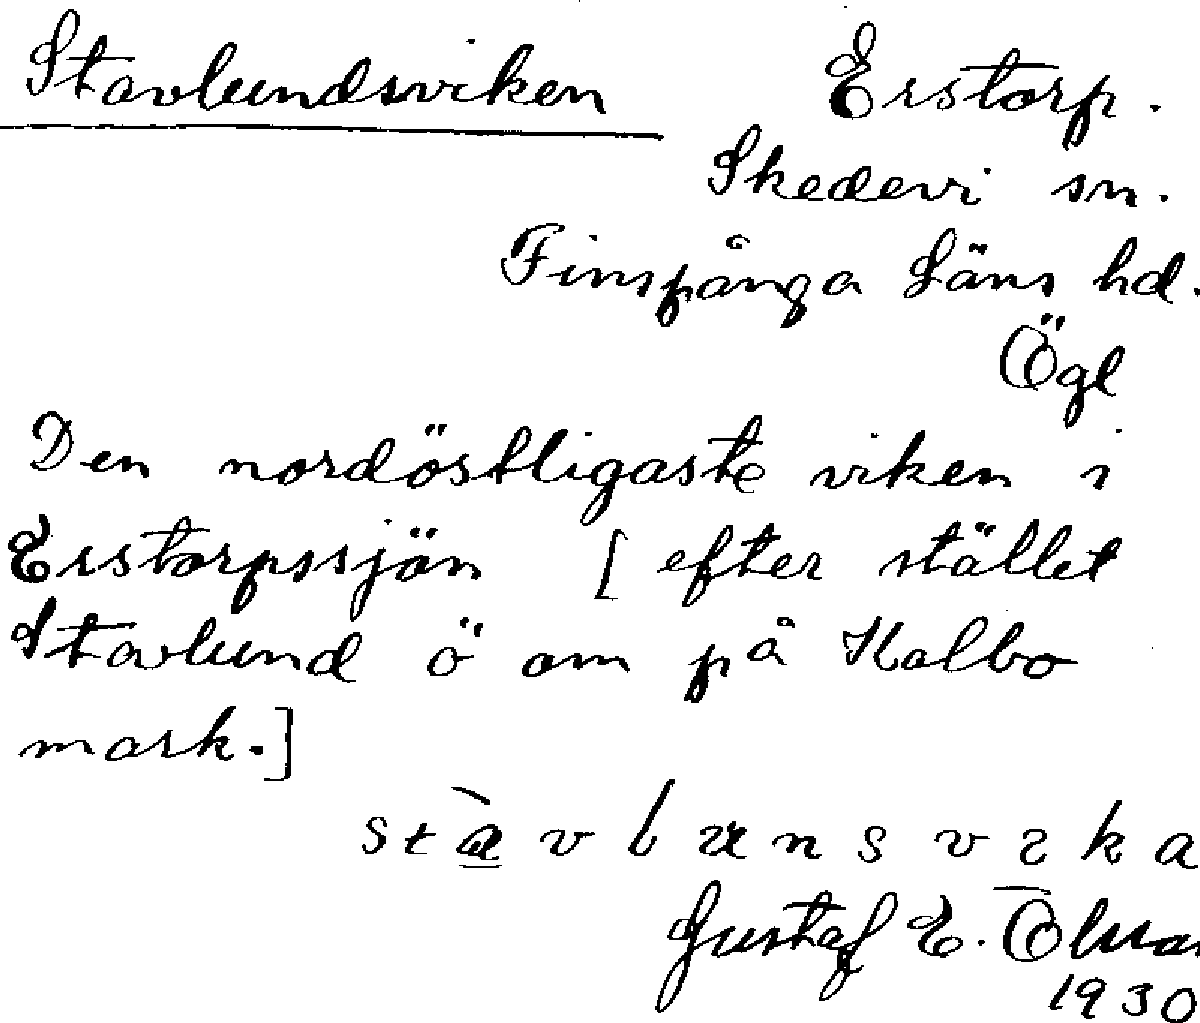 Stavlundsviken Erstorp.
Skedevi sn.
Finspånga Läns hd.
Ögl
Den nordöstligaste viken i
Erstorpssjön [efter stället
Stavlund ö om på Kalbo
mark.]
Gustaf E. Olsson
1930